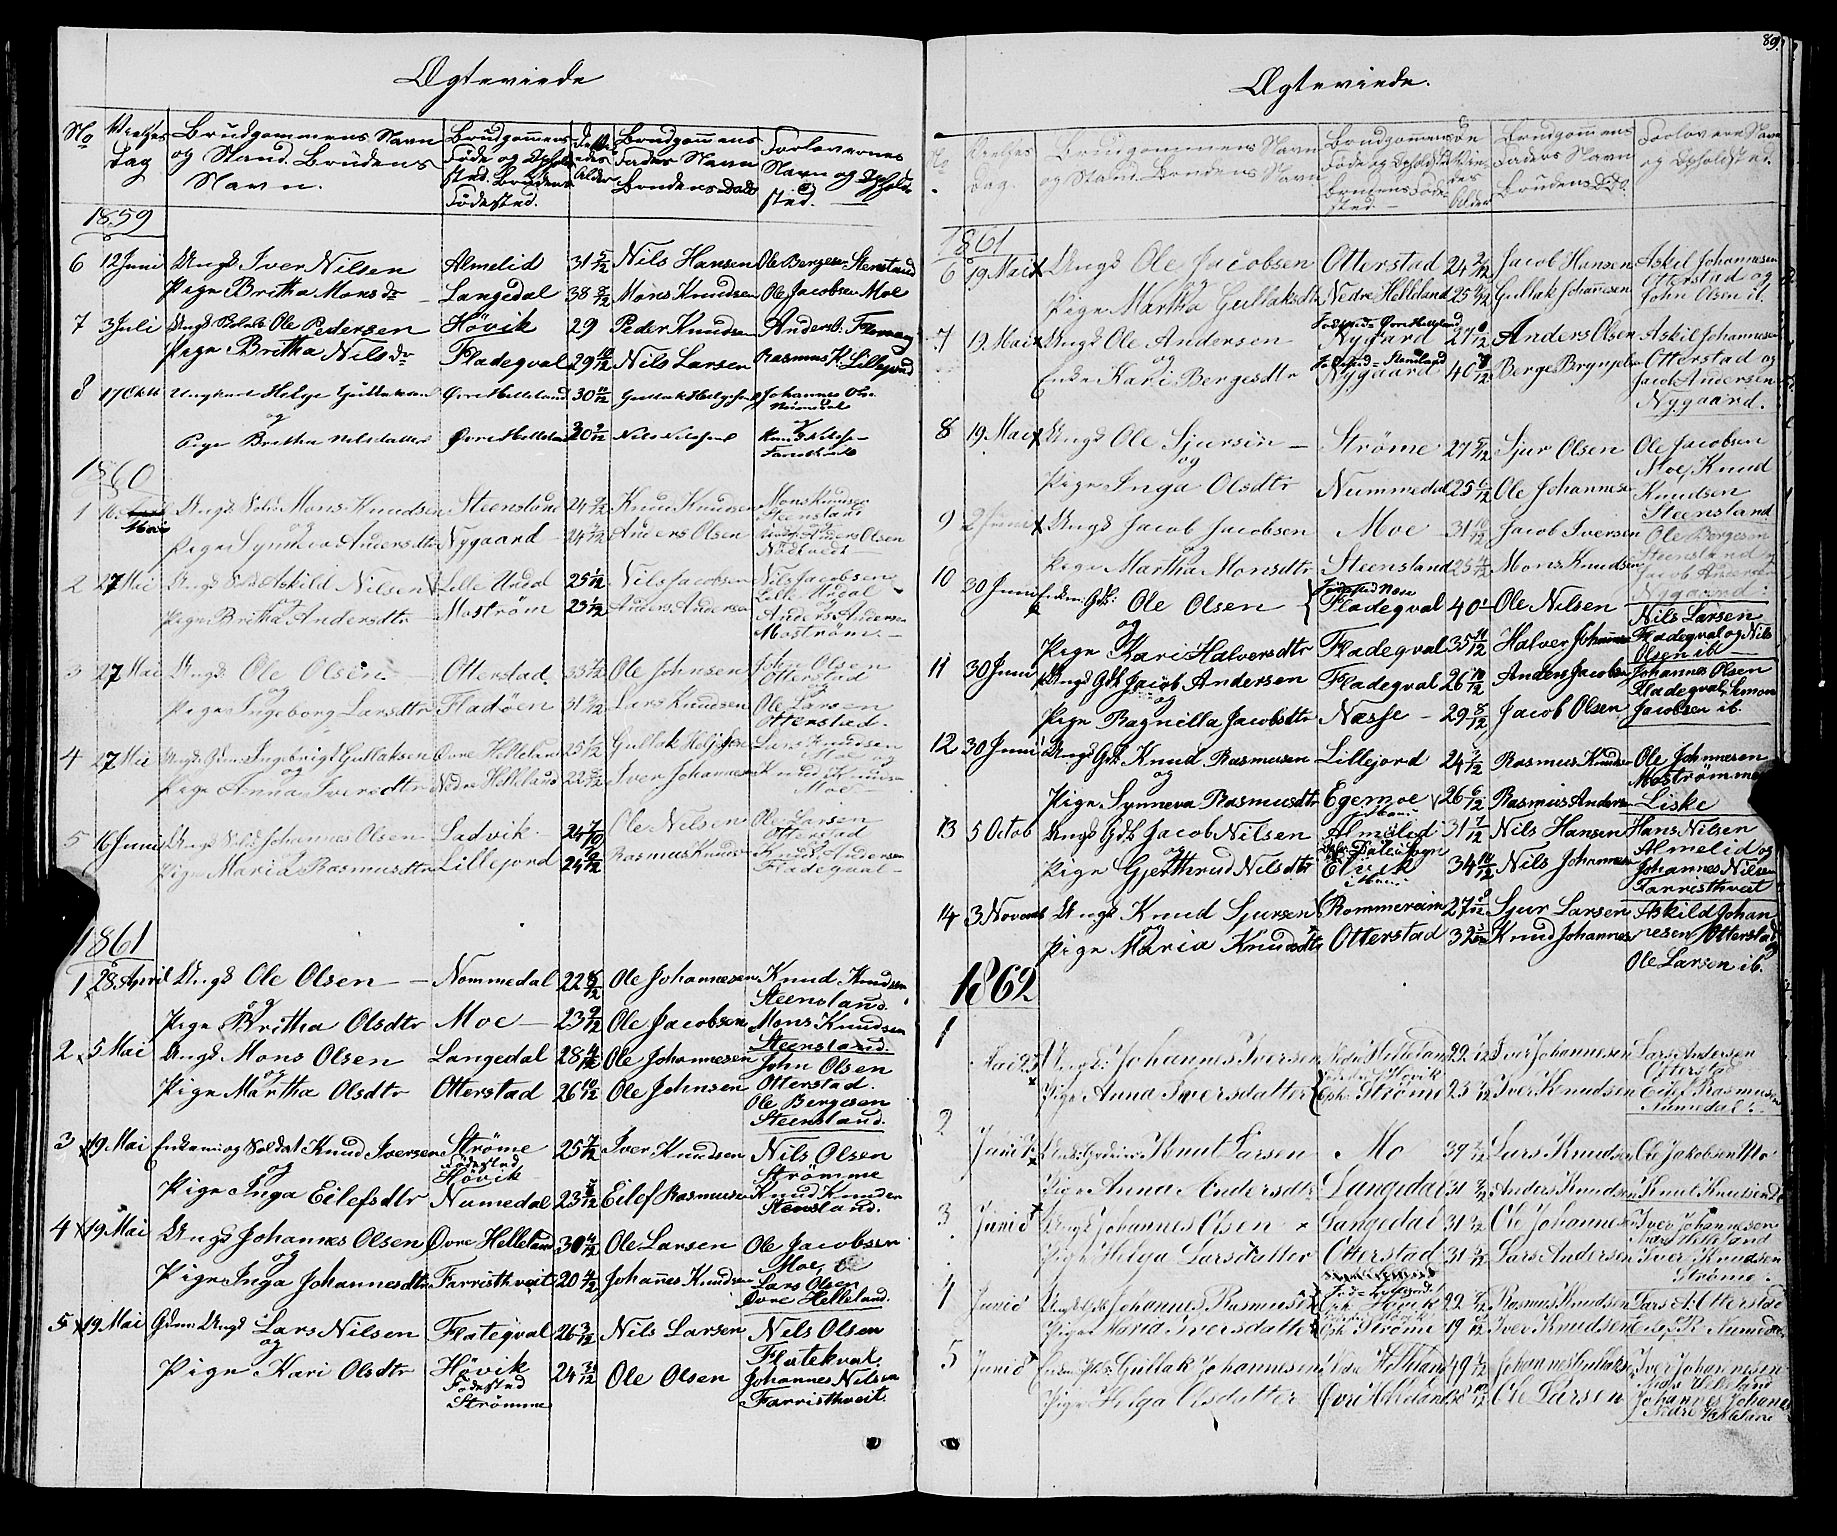 Ægteviede
No Vielses Dag Brudgommens Navn og Stand. Brudens Navn. Brudgommens Føde og Opholdsted. Brudens Fødested. Alder Brudgommens Faders Navn Brudens Do Forlovernes Navn og Opholdsted.
1859
6 12 Juni Ungk Iver Nilsen Almelid 31 5/12 Nils Hansen Ole Bergesen Stensland
Pige Britha Monsdr Langedal 38 Mons Knudsen Ole Jacobsen Moe
7 3 Juli Ungk Ole Pedersen Høvik 29 Peder Knudsen Anders
Pige Britha Nilsdr Fladeqval 29 10/12 Nils Larsen Rasmus K. Lillejord
8 17 Oktb Ungkarl Helge Gullaksen Øvre Helleland 30 Gullak Helgesen Johannes Ols.
og
Pige Britha Nilsdatter Øvre Helleland 30 Nils Nilsen Knud Nilsen
1860
1 16 Mai Ungk Sold. Mons Knudsen Steensland 24 Knud Knudsen Mons Knudsen
Steensland
Pige Synneva Andersdtr Nygaard 24 Anders Olsen Anders Olsen
2 27 Mai Ungk Sold Askild Nilsen Lille Urdal 25 1/12 Nils Jacobsen Nils Jacobsen
Lille Urdal
Pige Britha Andersdtr Moström 23 1/12 Anders Andersen Anders Andersen
Moström
3 27 Mai Ungk Ole Olsen Otterstad Ole Johnsen John Olsen
og Otterstad
Pige Ingeborg Larsdtr Fladöen 31 Lars Knudsen Ole Larsen
Otterstad.
4 27 Mai Ungk Ingebrigt Gullaksen Øvre Helleland 25 Gullak Helgesen Lars Knudsen
og Moe og
Pige Anna Iversdtr Nedre Helleland 22 Iver Johannesen Knud Knudsen
Moe
5 16 Juni Ungk Sold Johannes Olsen Ladvik 24 Ole Nilsen Ole Larsen
Otterstad
Pige Maria Rasmusdtr Lillejord 24 Rasmus Knudsen Knud Andersen
Fladeqval
1861
1 28 April Ungk Ole Olsen Nommedal 22 Ole Johannesen Knud Knudsen
og Steensland.
Pige Britha Olsdtr Moe 23 9/12 Ole Jacobsen Mons Knudsen
Steensland.
2 5 Mai Ungk Mons Olsen Langedal 28 Ole Johannesen John Olsen
og Otterstad.
Pige Martha Olsdtr Otterstad 26 10/12 Ole Johnsen Ole Bergesen
Steensland.
3 19 Mai Enkem og Soldat Knud Iversen Ströme 25 7/12 Iver Knudsen Nils Olsen
og Födested Strömme
Høvik
Pige Inga Eilefsdtr Numedal 23 Eilef Rasmusen Knud Knudsen
Stensland.
4 19 Mai Ungk Johannes Olsen Øvre Helleland 30 Ole Larsen Ole Jacobsen
og Moe,
Pige Inga Johannesdtr Farristhveit 20 Johannes Knudsen Lars Olsen
Øvre Helleland.
5 19 Mai Ungk Lars Nilsen Flateqval 26 3/12 Nils Larsen Nils Olsen
og Flatekval.
Pige Kari Olsdtr Høvik 24 Ole Olsen Johannes Nilsen
Födested Farristhveit.
Strömme
89.
Ægteviede.
No. Vielses Dag. Brudgommens Navn og Stand. Brudens Navn Brudgommens Føde og Opholdsted Brudens Fødested. De Viedes Alder Brudgommens Faders Navn Brudens Do. Forlovernes Navn og Opholdsted.
1861
6 19 Mai Ungk Ole Jacobsen Otterstad 24 Jacob Hansen Askil Johannesen
Otterstad og
Pige Martha Gullaksdtr Nedre Helleland 25 Gullak Johannesen John Olsen ib.
Födested Øvre Helleland
7 19 Mai Ungk Ole Andersen Nygaard 27 Anders Olsen Askil Johannesen
og Födested Stensland Otterstad og
Enke Kari Bergesdtr Nygaard 40 Berge Brynjels. Jacob Andersen
Nygaard.
8 19 Mai Ungk Ole Sjursen Ströme 27 Sjur Olsen Ole Jacobsen
og Moe, Knud
Pige Inga Olsdtr Nummedal 25 Ole Johannesen Knudsen
Steensland
9 2 Juni Ungk Jacob Jacobsen Moe 31 10/12 Jacob Iversen Ole Bergesen
og Steensland
Pige Martha Monsdtr Steensland 25 Mons Knudsen Jacob Andersen
Nygaard.
10 30 Juni Enkem: Gdb: Ole Olsen Fladeqval 40 Ole Nilsen Nils Larsen
og Fladeqval og Nils
Pige Kari Halversdtr Fladeqval 35 11/12 Halver Johannes Olsen ib
11 30 Juni Ungk Gdb Jacob Andersen Fladeqval 26 10/12 Anders Jacobsen Johannes Olsen
og Fladeqval, Simon
Pige Ragnilla Jacobsdtr Næsse 29 8/12 Jacob Olsen Jacobsen ib.
12 30 Juni Ungk Gdb Knud Rasmusen Lillejord 24 3/12 Rasmus Knudsen Ole Johannesen
og Moströmmen
Pige Synneva Rasmusdtr Egemoe 26 6/12 Rasmus Anders. Liske
13 5 Octob Ungk Gdb Jacob Nilsen Almelid 31 7/12 Nils Hansen Hans Nilsen
og Almelid og
Pige Gjerthrud Nilsdtr Elvik 34 10/12 Nils Johannesen Johannes Nilsen
Farristhveit
14 3 Novemb Ungk Knud Sjursen Rommereim 27 Sjur Larsen Askild Johan
og
Pige Maria Knudsdtr Otterstad 32 Knud Johannes nesen Otterstad
Ole Larsen ib.
1862
1
Mai 25 Ungk: Johannes Iversen Nedre Helleland 29 Iver Johannesen Lars Andersen
Høvik Otterstad
Pige Anna Iversdatter Oph: Ströme 23 Iver Knudsen Eilef Rasmusen
Numedal.
2
Juni Ungk: Knut Larsen Mo 39 Lars Knudsen Ole Jakobsen Mo
Pige Anna Andersdtr Langedal 31 Anders Knudsen Knut Knutsen
3 Juni Ungk Johannes Olsen Langedal 31 Ole Johannesen Iver Johannesen
Nedre Helleland
Pige Helga Larsdatter Otterstad 31 Lars Andersen Iver Knudsen
Ströme.
4 Juni Ungk Johannes Rasmusen Oph Høvik 29 Rasmus Knudsen Lars A. Otterstad
Pige Maria Iversdatter Oph Ströme 19 Iver Knudsen Eilef R. Numedal
5 Juni Enkem Gullak Johannesen Nedre Helleland 49 Johannes Gullaks. Iver Johannesen
Nedre Helleland
Pige Helga Olsdatter Øvre Helleland 38 Ole Larsen Johannes Johannes
Nedre Helleland